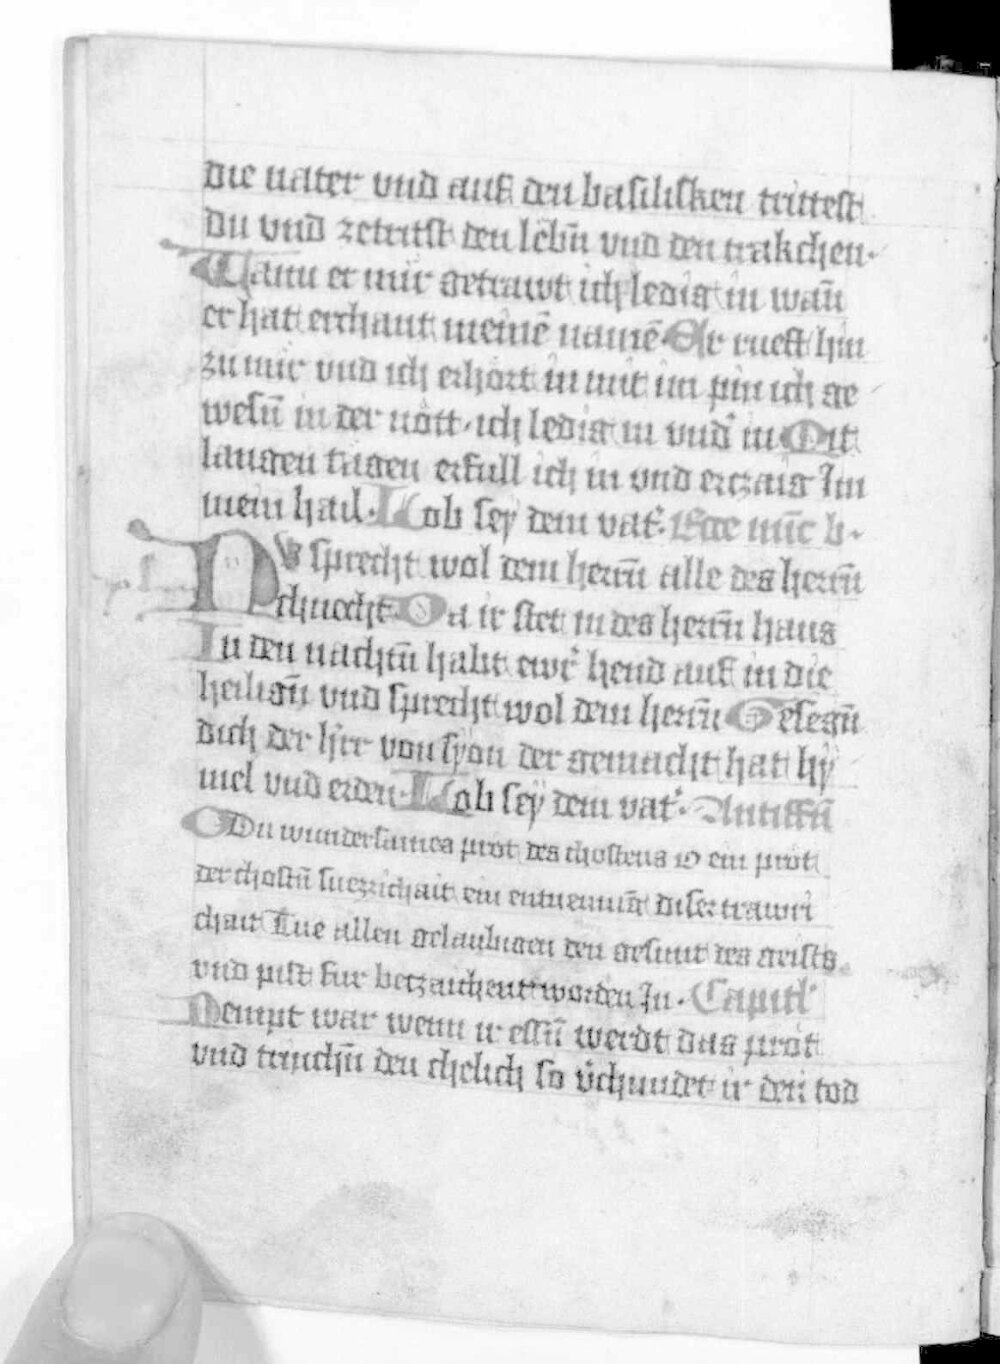 die nater vnd auf den basilisken trittest
du vnd zetritst den lebn̄ vnd den trakchen·
Wann er mir getrawt ich ledig in wan̄
er hat erchant meinē namē Er rueft hin
zu mir vnd ich erhört in mit im pin ich ge
wesn̄ in der nött· ich ledig in vnd in Mit
langen tägen erfull ich in vnd erczaig Im
mein hail· Lob seÿ dem vat͛· Ecce nūc b·
Nv sprecht wol dem herrn̄ alle des herrn̄
chnecht Da ir stet in des herrn̄ haus
In den nachtn̄ habt ewr͛ hend auf in die
heilign̄ vnd sprecht wol dem herrn̄ Gesegn̄
dich der h̄rr von sÿon der gemacht hat hÿ
mel vnd erden· Lob seÿ dem vat͛· Antiffn̄
O Du wundersames prot des chostens o ein prot
der chostn̄ suezzichait ein diser trawri
chait Tue allen gelaubigen den gesunt des geists
vnd pist fur betzaichent worden In· Capitl͛
Nempt war wenn ir essn̄ werdt das prot
vnd trinchn̄ den chelich so v͛chundet ir den tod